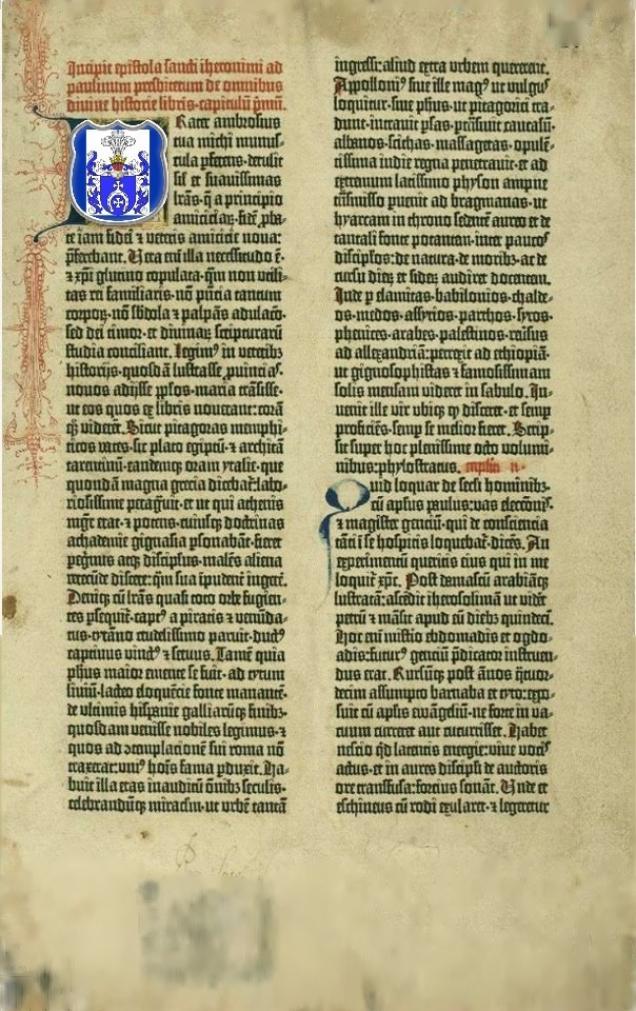 Incipit epistola sancti iheronimi ad
paulinum presbiterum de omnibus
divine historie libris. capitulū p̄mū.
Rater ambrosius
tua michi munus-
cula pferens. detulit
sil' et suavissimas
lr̄as. q̄ a principio
amiciciar̄. fidē pba-
te iam fidei ⁊ veteris amicicie nova:
p̄ferebant. Uera em̄ illa necessitudo ē.
⁊ xp̄i glutino copulata. q̄m non utili-
tas rei familiaris. nō p̄ncia tantum
corpor̄. nō s̄bdola ⁊ palpās adulacō.
sed dei timor. et divinar̄ scripturarū
studia conciliant. Legim⁹ in veterib₃
historijs. quosdā lustrasse ꝓvincias.
novos adijsse pplos. maria trāsisse.
ut eos quos ex libris noverant: corā
q₃ viderēt. Sicut pitagoras memphi-
ticos vates. sic plato egiptū. ⁊ architā
tarentinū. eandemq₃ oram ytalie. que
quondā magna grecia dicebat̄: labo-
riosissime peragvit. et ut qui athenis
mgr̄ erat. ⁊ potens. cuiusq₃ doctrinas
achademie gignasia psonabāt. fieret
pegrinus atq₃ discipulus. malēs aliena
verecūde discere: q̄m sua īpudent̄ ingere.
Deniq₃ cū lr̄as quasi toto orbe fugien-
tes psequit̄. capt⁹ a piratis ⁊ venūda-
tus. tyrāno crudelissimo paruit. duct⁹
captivus vinct⁹ ⁊ servus. Tamē quia
ph̄us maior emente se fuit. ad tytum
liviū. lacteo eloquēcie fonte manantē.
de ultimis hispanie galliarūq₃ finib₃.
quosdam venisse nobiles legimus. ⁊
quos ad ɔtemplacionē sui roma nō
traxerat: uni⁹ hoīs fama pduxit. Ha-
buit illa etas inauditū om̄ib₃ seculis.
celebrandūq₃ miraclm̄. ut urbē tantā
ingressi: aliud extra urbem quererent.
Appolloni⁹ sive ille mag⁹ ut vulgus
loquitur. sive ph̄us. ut pitagorici tra-
dunt. intravit psas. ptrāsivit caucasū.
albanos. scithas. massagetas. opulē-
tissima indie regna penetravit. et ad
extremum latissimo physon ampne
trāsmisso puenit ad bragmanas. ut
hyarcam in throno sedentē aureo et de
tantali fonte potantem. inter paucos
discipulos: de natura. de moribʒ. ac de
cursu dier̄ et sider̄ audiret docentem.
Inde p elamitas. babilonios. chalde-
os. medos. assyrios. parthos. syros.
phenices. arabes. palestinos. revsus
ad allexandriā: perrexit ad ethiopiā.
ut gignosophistas ⁊ famosissimam
solis mensam videret in sabulo. In-
venit ille vir ubiq₃ qd̄ disceret. et semp
proficiēs. semp se melior fieret. Scrip-
sit super hoc plenissime octo volumi-
nibus: phylostratus.
Quid loquar de secl̄i hominib₃.
cū apl̄us paulus: vas elecc̄onis.
⁊ magister genciū. qui de consciencia
tāti ī se hospitis loquebat̄. dicēs. An
experimentū queritis eius qui in me
loquit̄ xp̄c. Post damascū arabiāq₃
lustratā: ascēdit iherosolimā ut vidēt
petrū ⁊ māsit apud eū dieb₃ quindecī.
Hoc em̄ misterio ebdomadis et ogdo-
adis: futur⁹ genciū p̄dicator instruen-
dus erat. Rursūq₃ post ānos q̄tuor-
decim assumpto barnaba et tyto: expo-
suit cū apl̄is ewāgeliū. ne forte in va-
cuum curreret aut cucurrisset. Habet
nescio qd̄ latentis energie: vive vocis
actus. et in aures discipli de auctoris
ore transfusa: forcius sonat̄. Unde et
eschineus cū rodi exularet. ⁊ legeretur